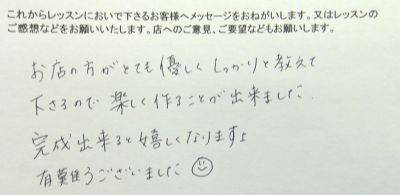 これからレッスンにおいで下さるお客様へメッセージをおねがいします。又はレッスンの
ご感想などをお願いいたします。店へのご意見、ご要望などもお願いします。
お店の方がとても優しくしっかりと教えて
下さるので楽しく作ることが出来ました
完成出来ると嬉しくなりますよ
有難うございました